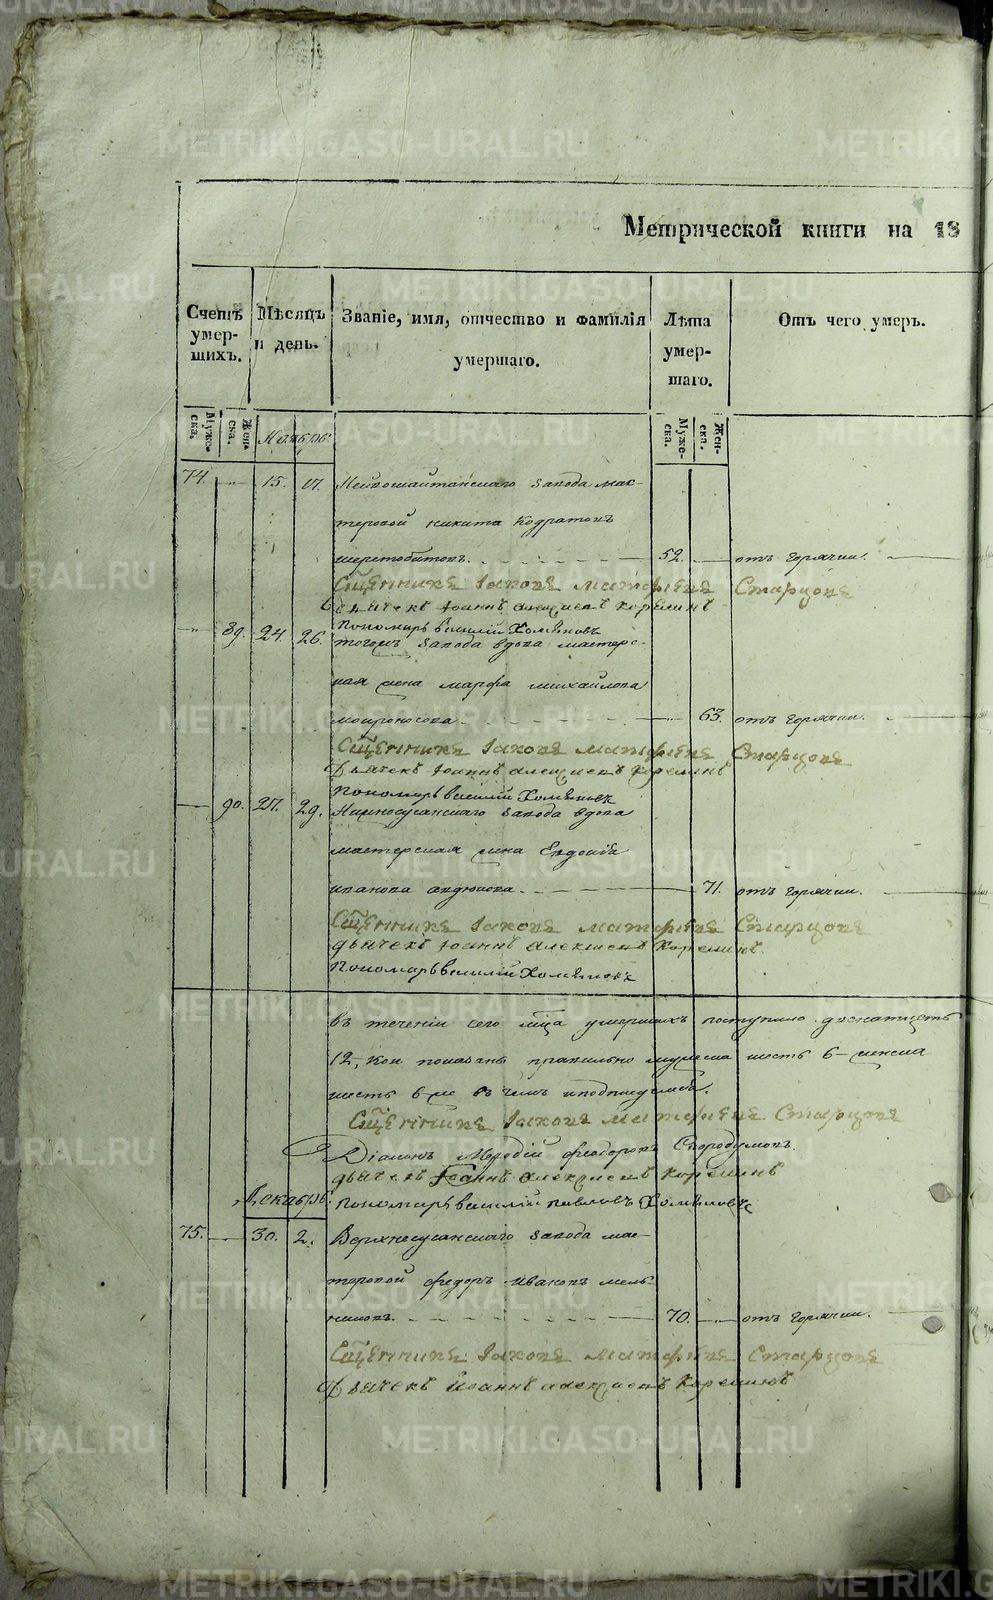 Метрической книги на 18
Счетъ умер-
шихъ.
Мѣсяцъ
и день.
Званіе, имя, отчество и фамилія
умершаго.
Лѣта
умер-
шаго.
Отъ чего умеръ.
Муже-
ска.
Жен-
ска.
Ноябрь
Муже-
ска.
Жен-
ска.
74. 15. 17. Нейвошайтанскаго завода мас-
теровой никита Кодратовъ
шерстобитовъ. 52. отъ горячки.
Сщенникъ Іаковъ матфѣевъ Старцовъ
дьячекъ Іоаннъ алексіевъ Корелинъ
пономарь василій Хомяковъ
89. 24. 26. тогожъ завода вдова мастерс-
кая жена марфа михайлова
мокроносова. 63. отъ горячки.
Сщенникъ Іаковъ матфѣевъ Старцовъ
дьячекъ Іоаннъ алексіевъ Корелинъ
пономарь василій Хомяковъ
90. 27. 29. Нижносусанскаго завода вдова
мастерская жена Евдокія
иванова авдюкова. 71. отъ горячки.
Сщенникъ Іаковъ матфѣевъ Старцовъ
дьячекъ Іоаннъ алексіевъ Корелинъ
пономарь василій Хомяковъ
въ теченіи сего мца умершихъ поступило двенатцеть
12, кои показаны правильно мужеска шесть 6 - женска
шесть 6-ть въ чемъ иподпишуемся.
Сщенникъ Іаковъ матфѣевъ Старцовъ
Діаконъ Мефодій феодоровъ Стородумовъ
дьячекъ Іоаннъ алексіевъ Корелинъ
пономарь василій павловъ Хомяковъ
Декабрь
75. 30. 2. Верхнесусанскаго завода мас-
теровой федоръ ивановъ мель-
никовъ. 70. отъ горячки.
Сщенникъ Іаковъ матфѣевъ Старцовъ
дьячекъ Иоаннъ алексіевъ Корелинъ
METRIKI.GASO-URAL.RU